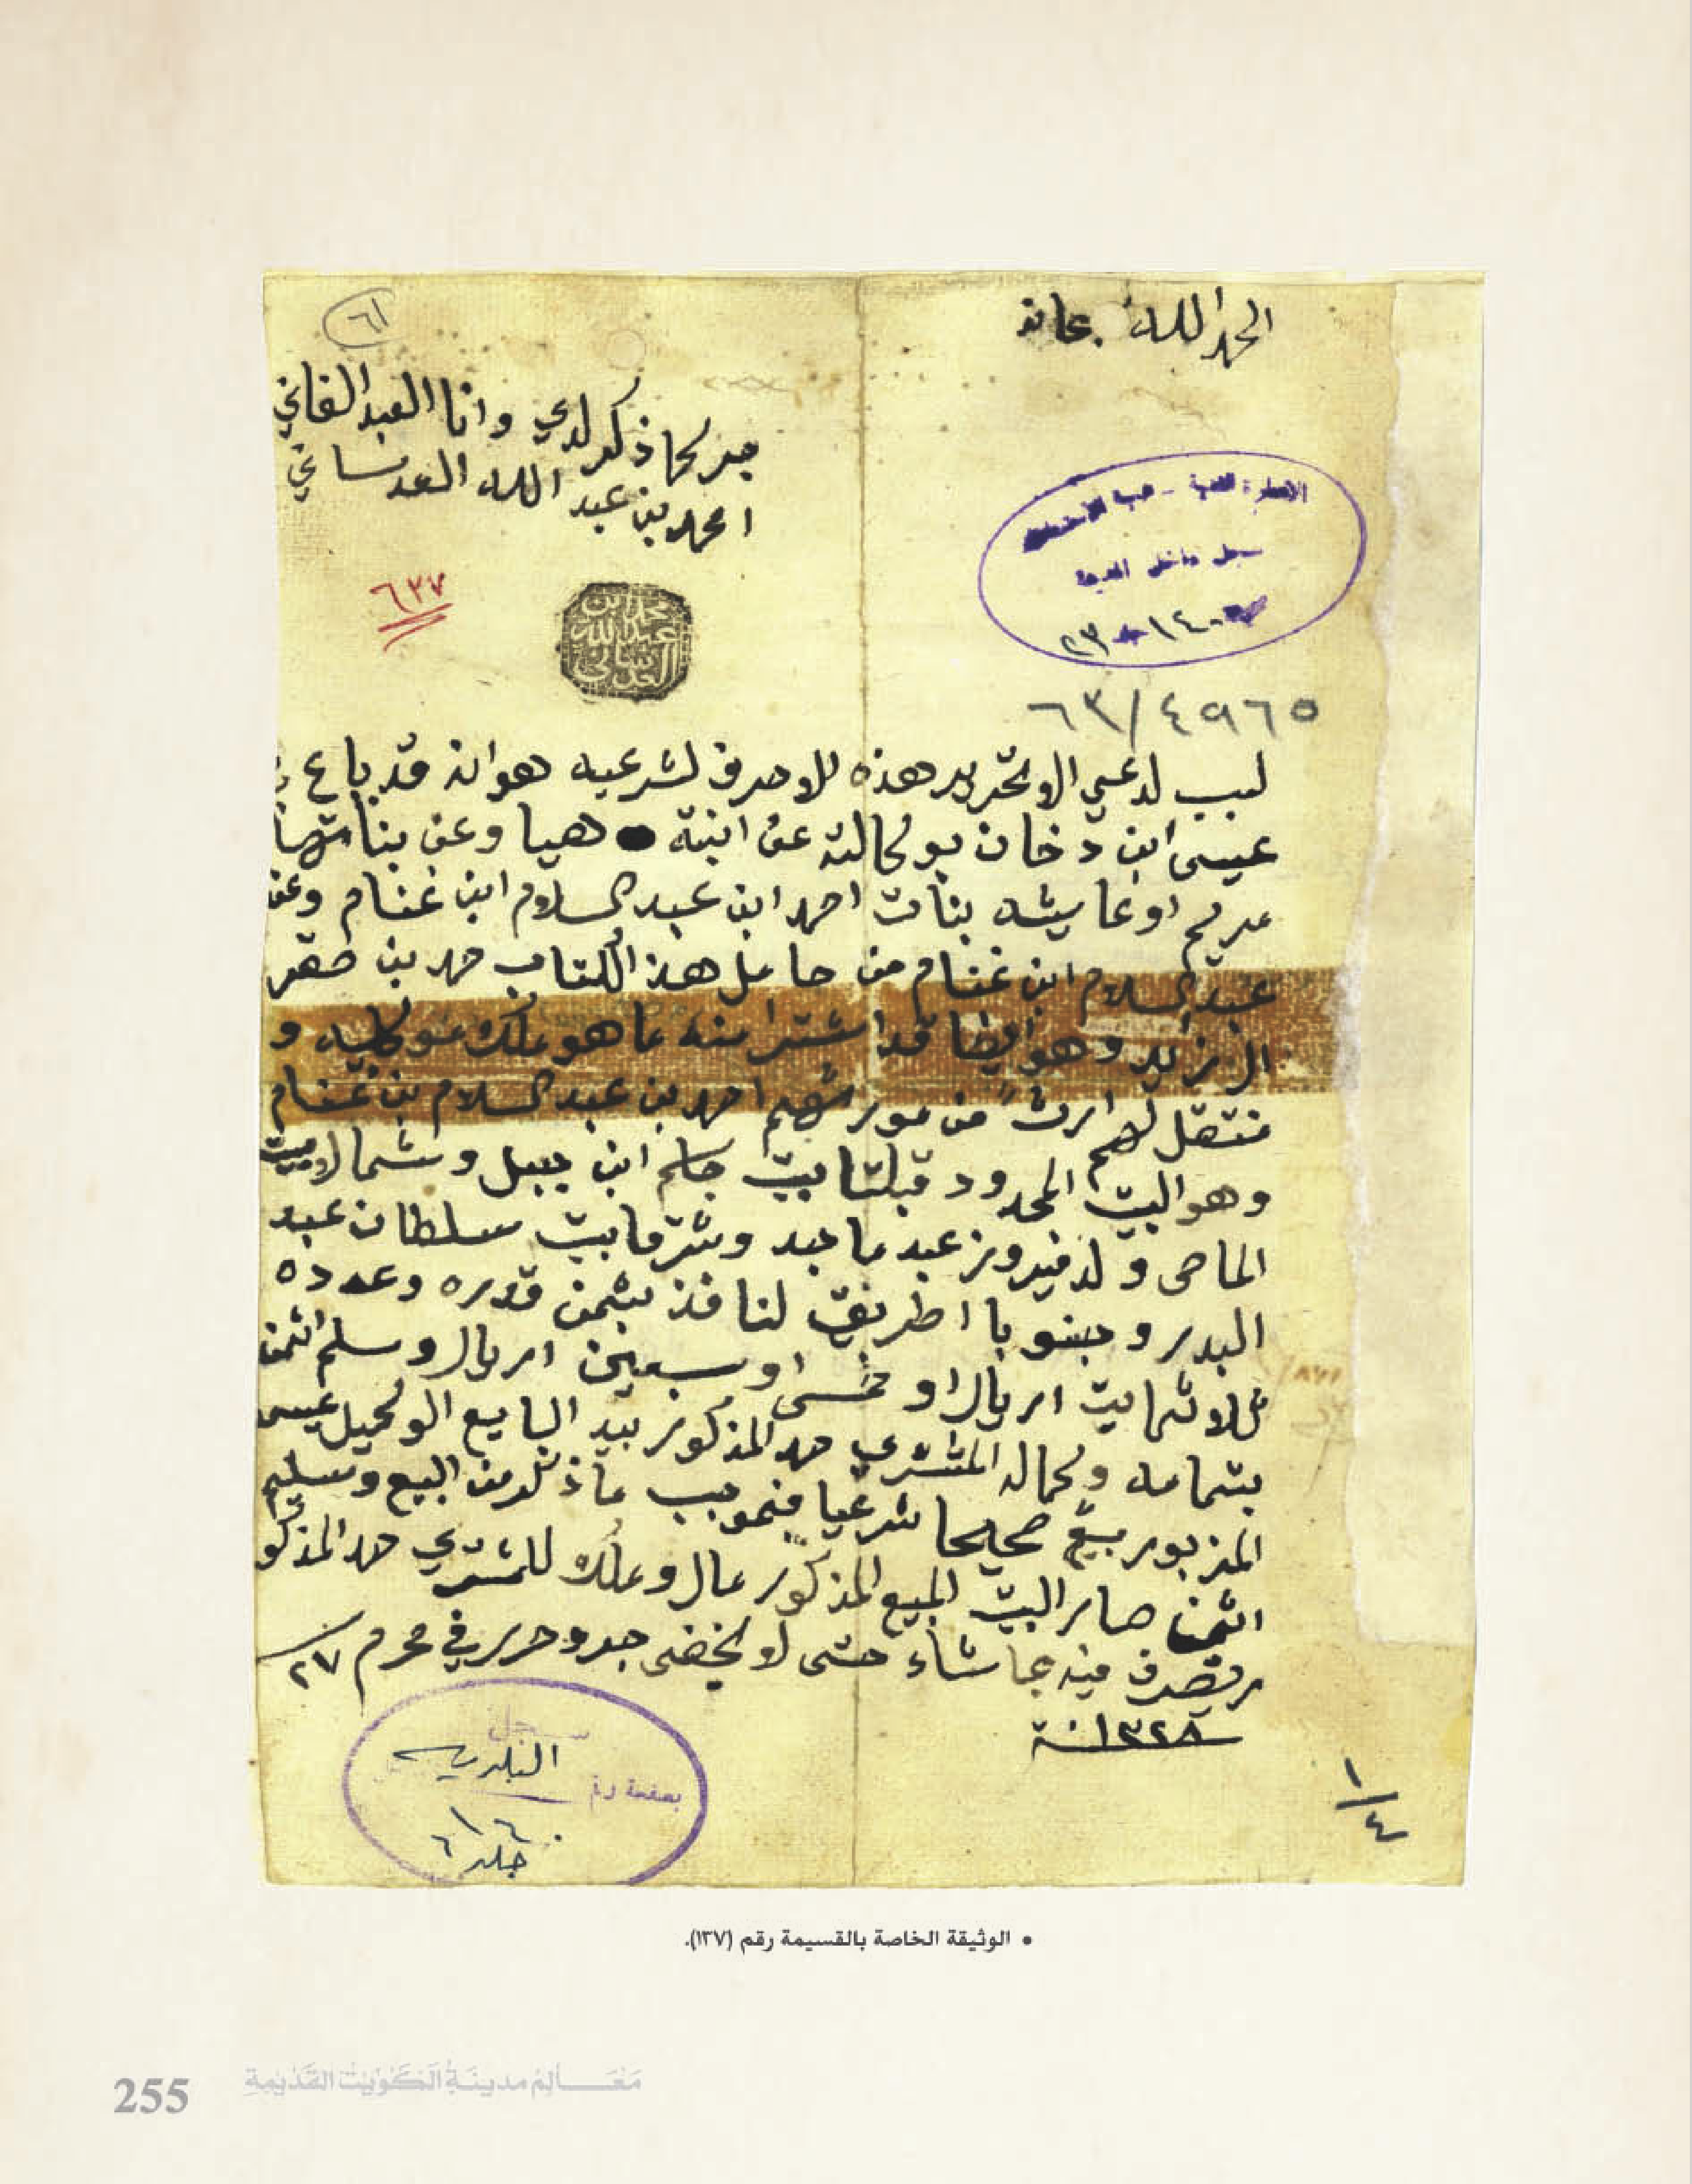 الحمد لله سبحانه
٦١
جرى كما ذكر لدي وانا العبد الفاني
محمد بن عبد الله العدساني
محمد ابن
عبدالله
العدساني
٦٣٧
سجل داخل المدينة
٦٣/٤٩٦٥
لسبب لداعي الا تحرير هذه الاحرف لشرعيه هو انه قد باع
عيسى ابن دخان بوكالته عن ابنته هيا وعن بناتها
مريم او عايشه بنات احمد ابن عبد السلام ابن غنام وعن
عبد السلام ابن غنام من حامل هذا الكتاب حمد بن صقر
الزيد وهو ايضا قد اشترا منه ما هو ملك موكليه و
منتقل لهم ارث من مورثهم احمد بن عبد السلام بن غنام
وهو البيت المحدود قبلتا بيت جاسم ابن جبل وشمالا بيت
الماص ولد فيروز عبد ماجد وشرقا بيت سلطان عبد
البدر وجنوبا اطريق لنافذ بثمن قدره وعدده
ثلاثمايت اريال او خمس او سبعين اريال وسلم اثمن
بتمامه وكماله المشتري حمد المذكور بيد البايع الوكيل عيسى
المزبور بيع صحيحا شرعيا فبموجب ما ذكر من البيع وتسليم
اثمن صار البيت المبيع المذكور مال وملك للمشتري حمد المذكو
يتصرف فيه بما شاء حتى لا يخفى جرى وحرر في محرم ٢٧
سنة ١٣٢٨
سجل
البلديه
بصفحة رقم
١٦٠
جلد ٦
١/٤
• الوثيقة الخاصة بالقسيمة رقم (١٣٧).
مَعَالِمُ مدينَةِ الكُوَيْت القَدْيمَةِ
255